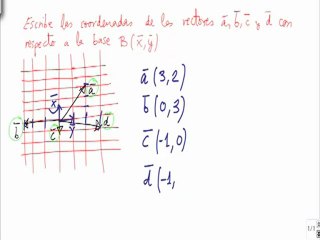 Escribe las coordenadas de los vectores a̅, b̅, c̅ y d̅ con
respecto a la base B(x̅,y̅)
a̅ (3,2)
b̅ (0,3)
c̅ (-1,0)
d̅ (-1,
a̅
x̅
b̅
c̅
y̅
d̅